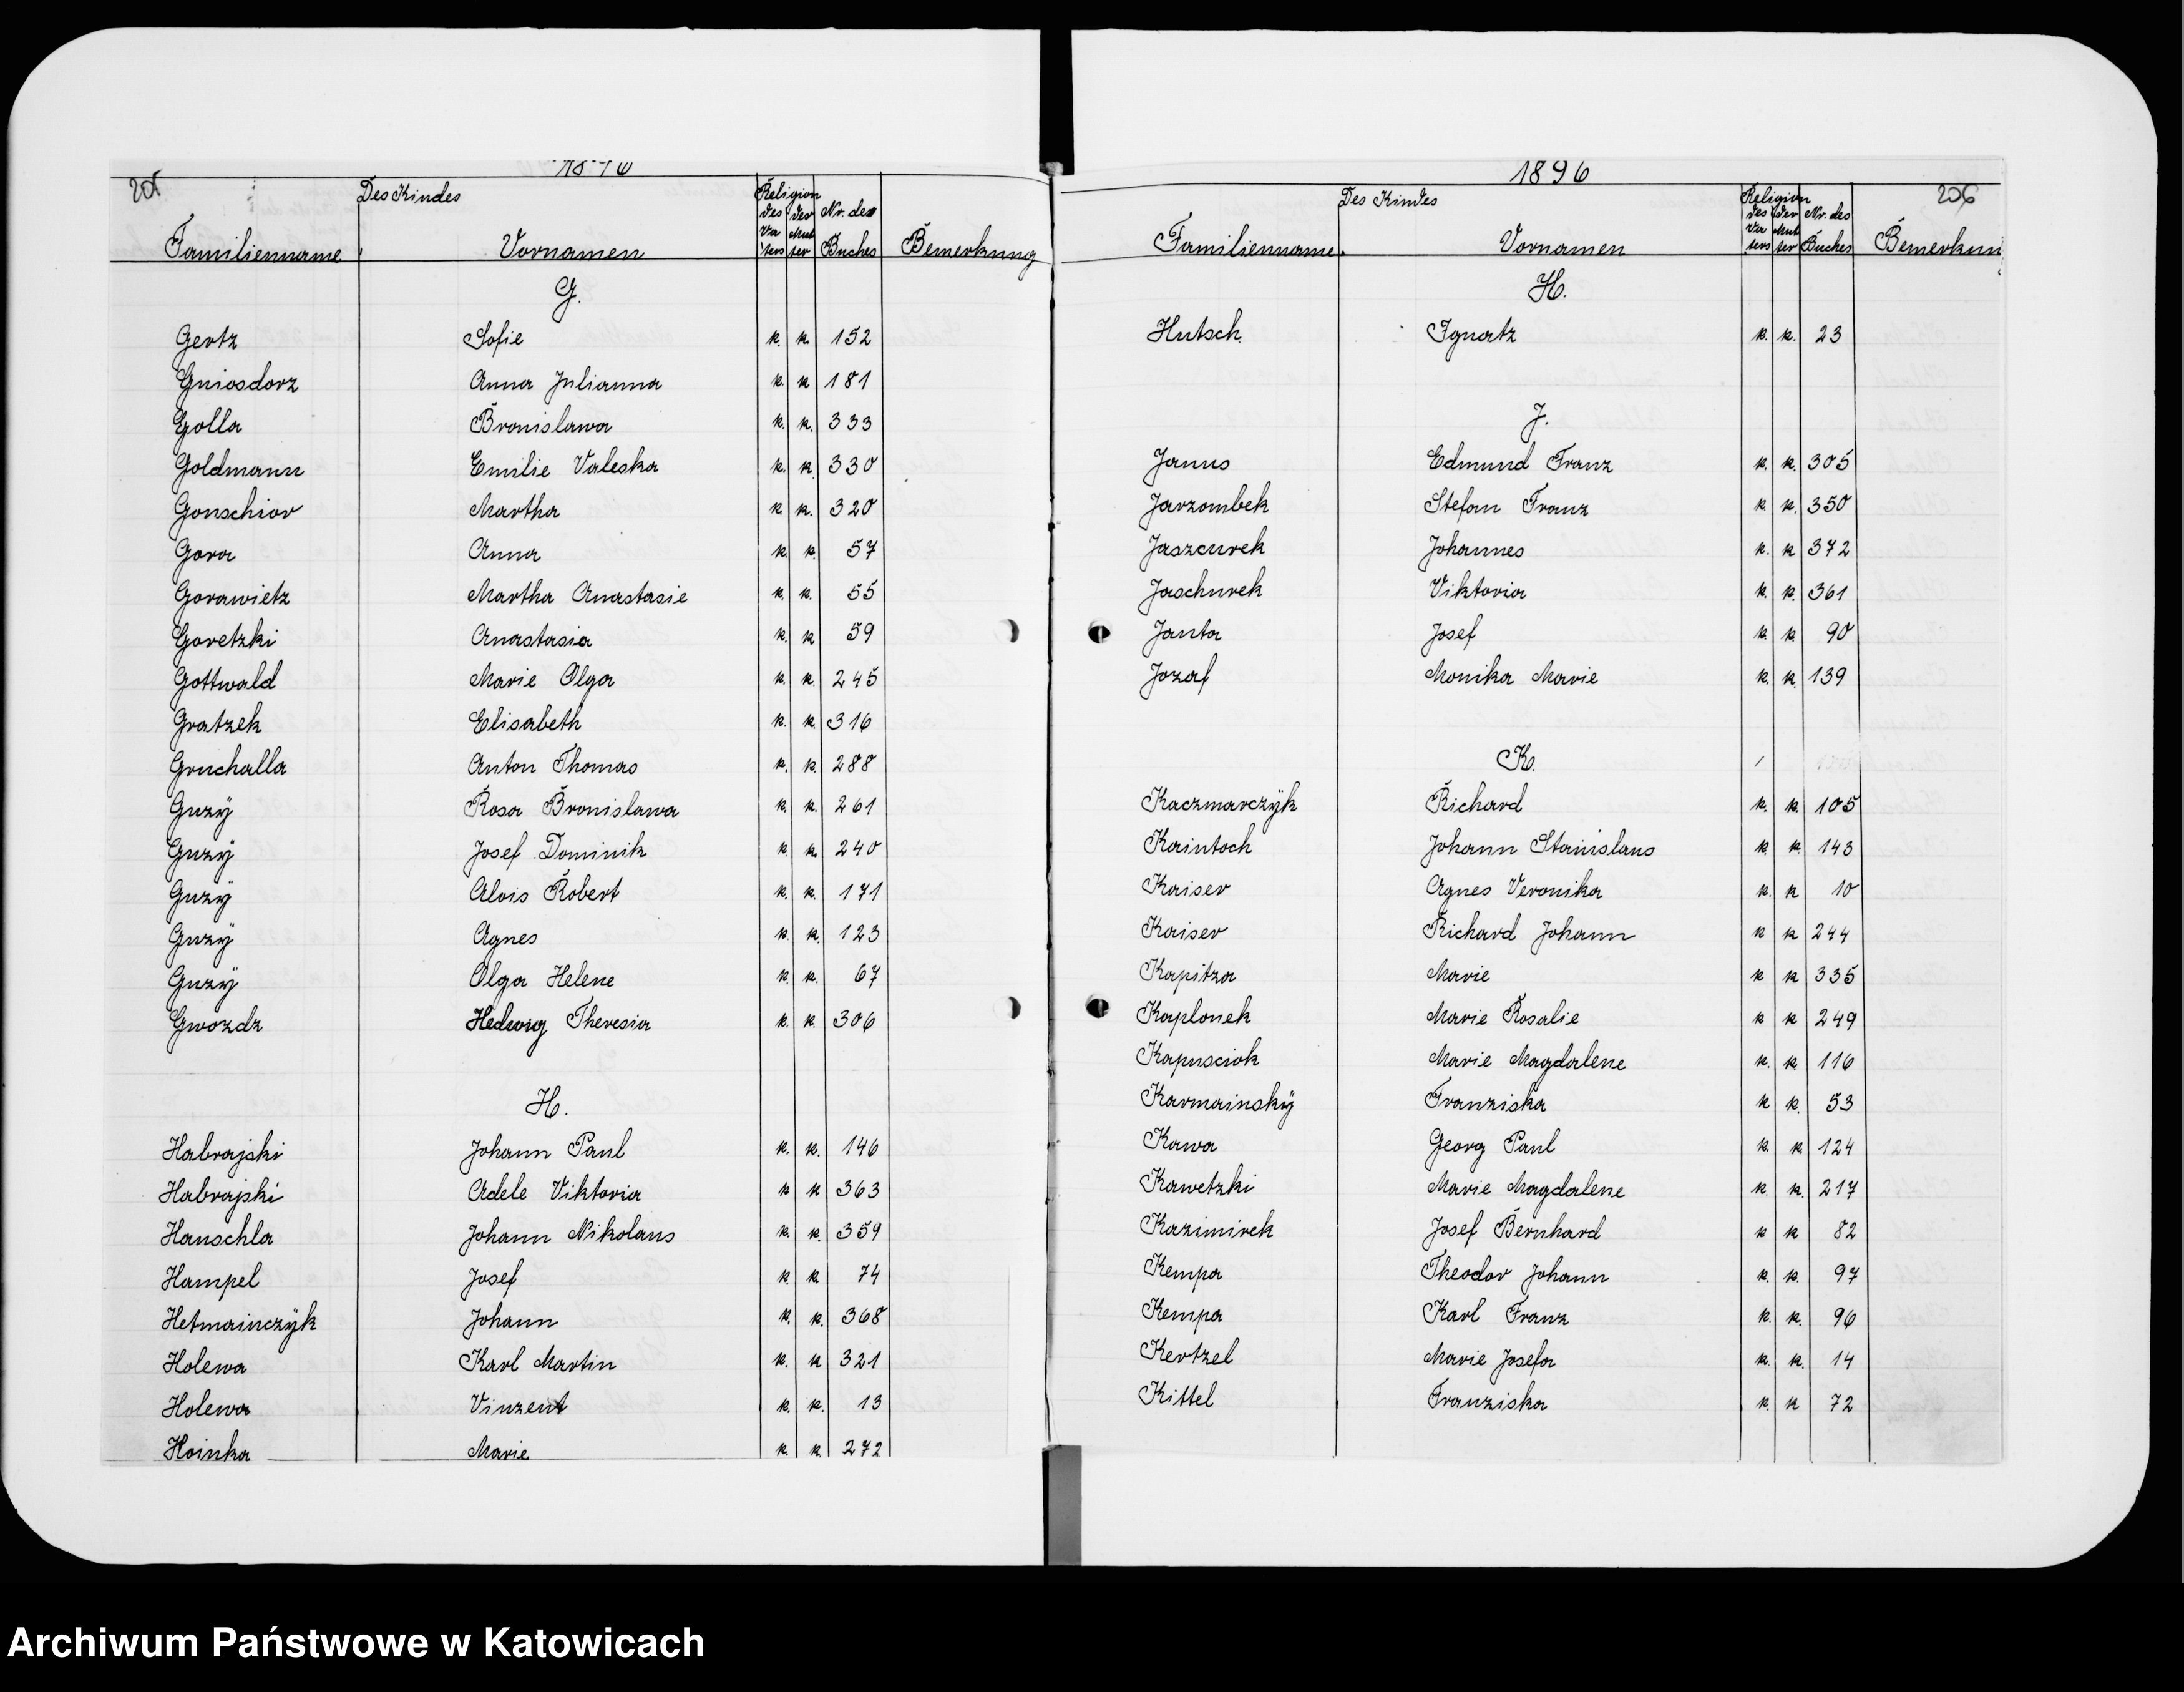 1896
205
Des Kindes
Religion
des Vaters
der Mutter
Nr. des Buches
Familienname
Vornamen
Bemerkung
G.
Gertz Sofie k. k. 152
Gniosdorz Anna Julianna k. k 181
Golla Bronislawa k. k. 333
Goldmann Emilie Valeska k. k 330
Gonschior Martha k k. 320
Gora Anna k. k. 57
Gorawietz Martha Anastasie k. k. 55
Goretzki Anastasia k. k 59
Gottwald Marie Olga k. k. 245
Gratzek Elisabeth k. k. 316
Gruchalla Anton Thomas k. k. 288
Guzÿ Rosa Bronislawa k. k. 261
Guzÿ Josef Dominik k. k. 240
Guzÿ Alois Robert k. k. 171
Guzÿ Agnes k. k. 123
Guzÿ Olga Helene k. k. 67
Gwozdz Hedwig Theresia k. k. 306
H.
Habrajski Johann Paul k. k. 146
Habrajski Adele Viktoria k k 363
Hanschla Johann Nikolaus k. k. 359
Hampel Josef k. k 74
Hetmainczÿk Johann k. k. 368
Holewa Karl Martin k. k 321
Holewa Vinzent k. k. 13
Hoinka Marie k. k. 272
1896
206
Des Kindes
Religion
des Vaters
der Mutter
Nr. des Buches
Familienname.
Vornamen
Bemerkun
H.
Hutsch Ignatz k. k. 23
J.
Janus Edmund Franz k. k. 305
Jarzombek Stefan Franz k. k. 350
Jaszcurek Johannes k. k 372
Jaschurek Viktoria k. k. 361
Janta Josef k. k. 90
Jozaf Monika Marie k. k. 139
K.
Kaczmarczÿk Richard k. k. 105
Kaintoch Johann Stanislaus k. k. 143
Kaiser Agnes Veronika k. k 10
Kaiser Richard Johann k k 244
Kapitza Marie k k 335
Kaplonek Marie Rosalie k k 249
Kapusciok Marie Magdalene k. k. 116
Karmainskÿ Franziska k k. 53
Kawa Georg Paul k. k. 124
Kawetzki Marie Magdalene k. k. 217
Kazimirek Josef Bernhard k k 82
Kempa Theodor Johann k. k. 97
Kempa Karl Franz k. k. 96
Kertzel Marie Josefa k. k. 14
Kittel Franziska k. k 72
Archiwum Państwowe w Katowicach